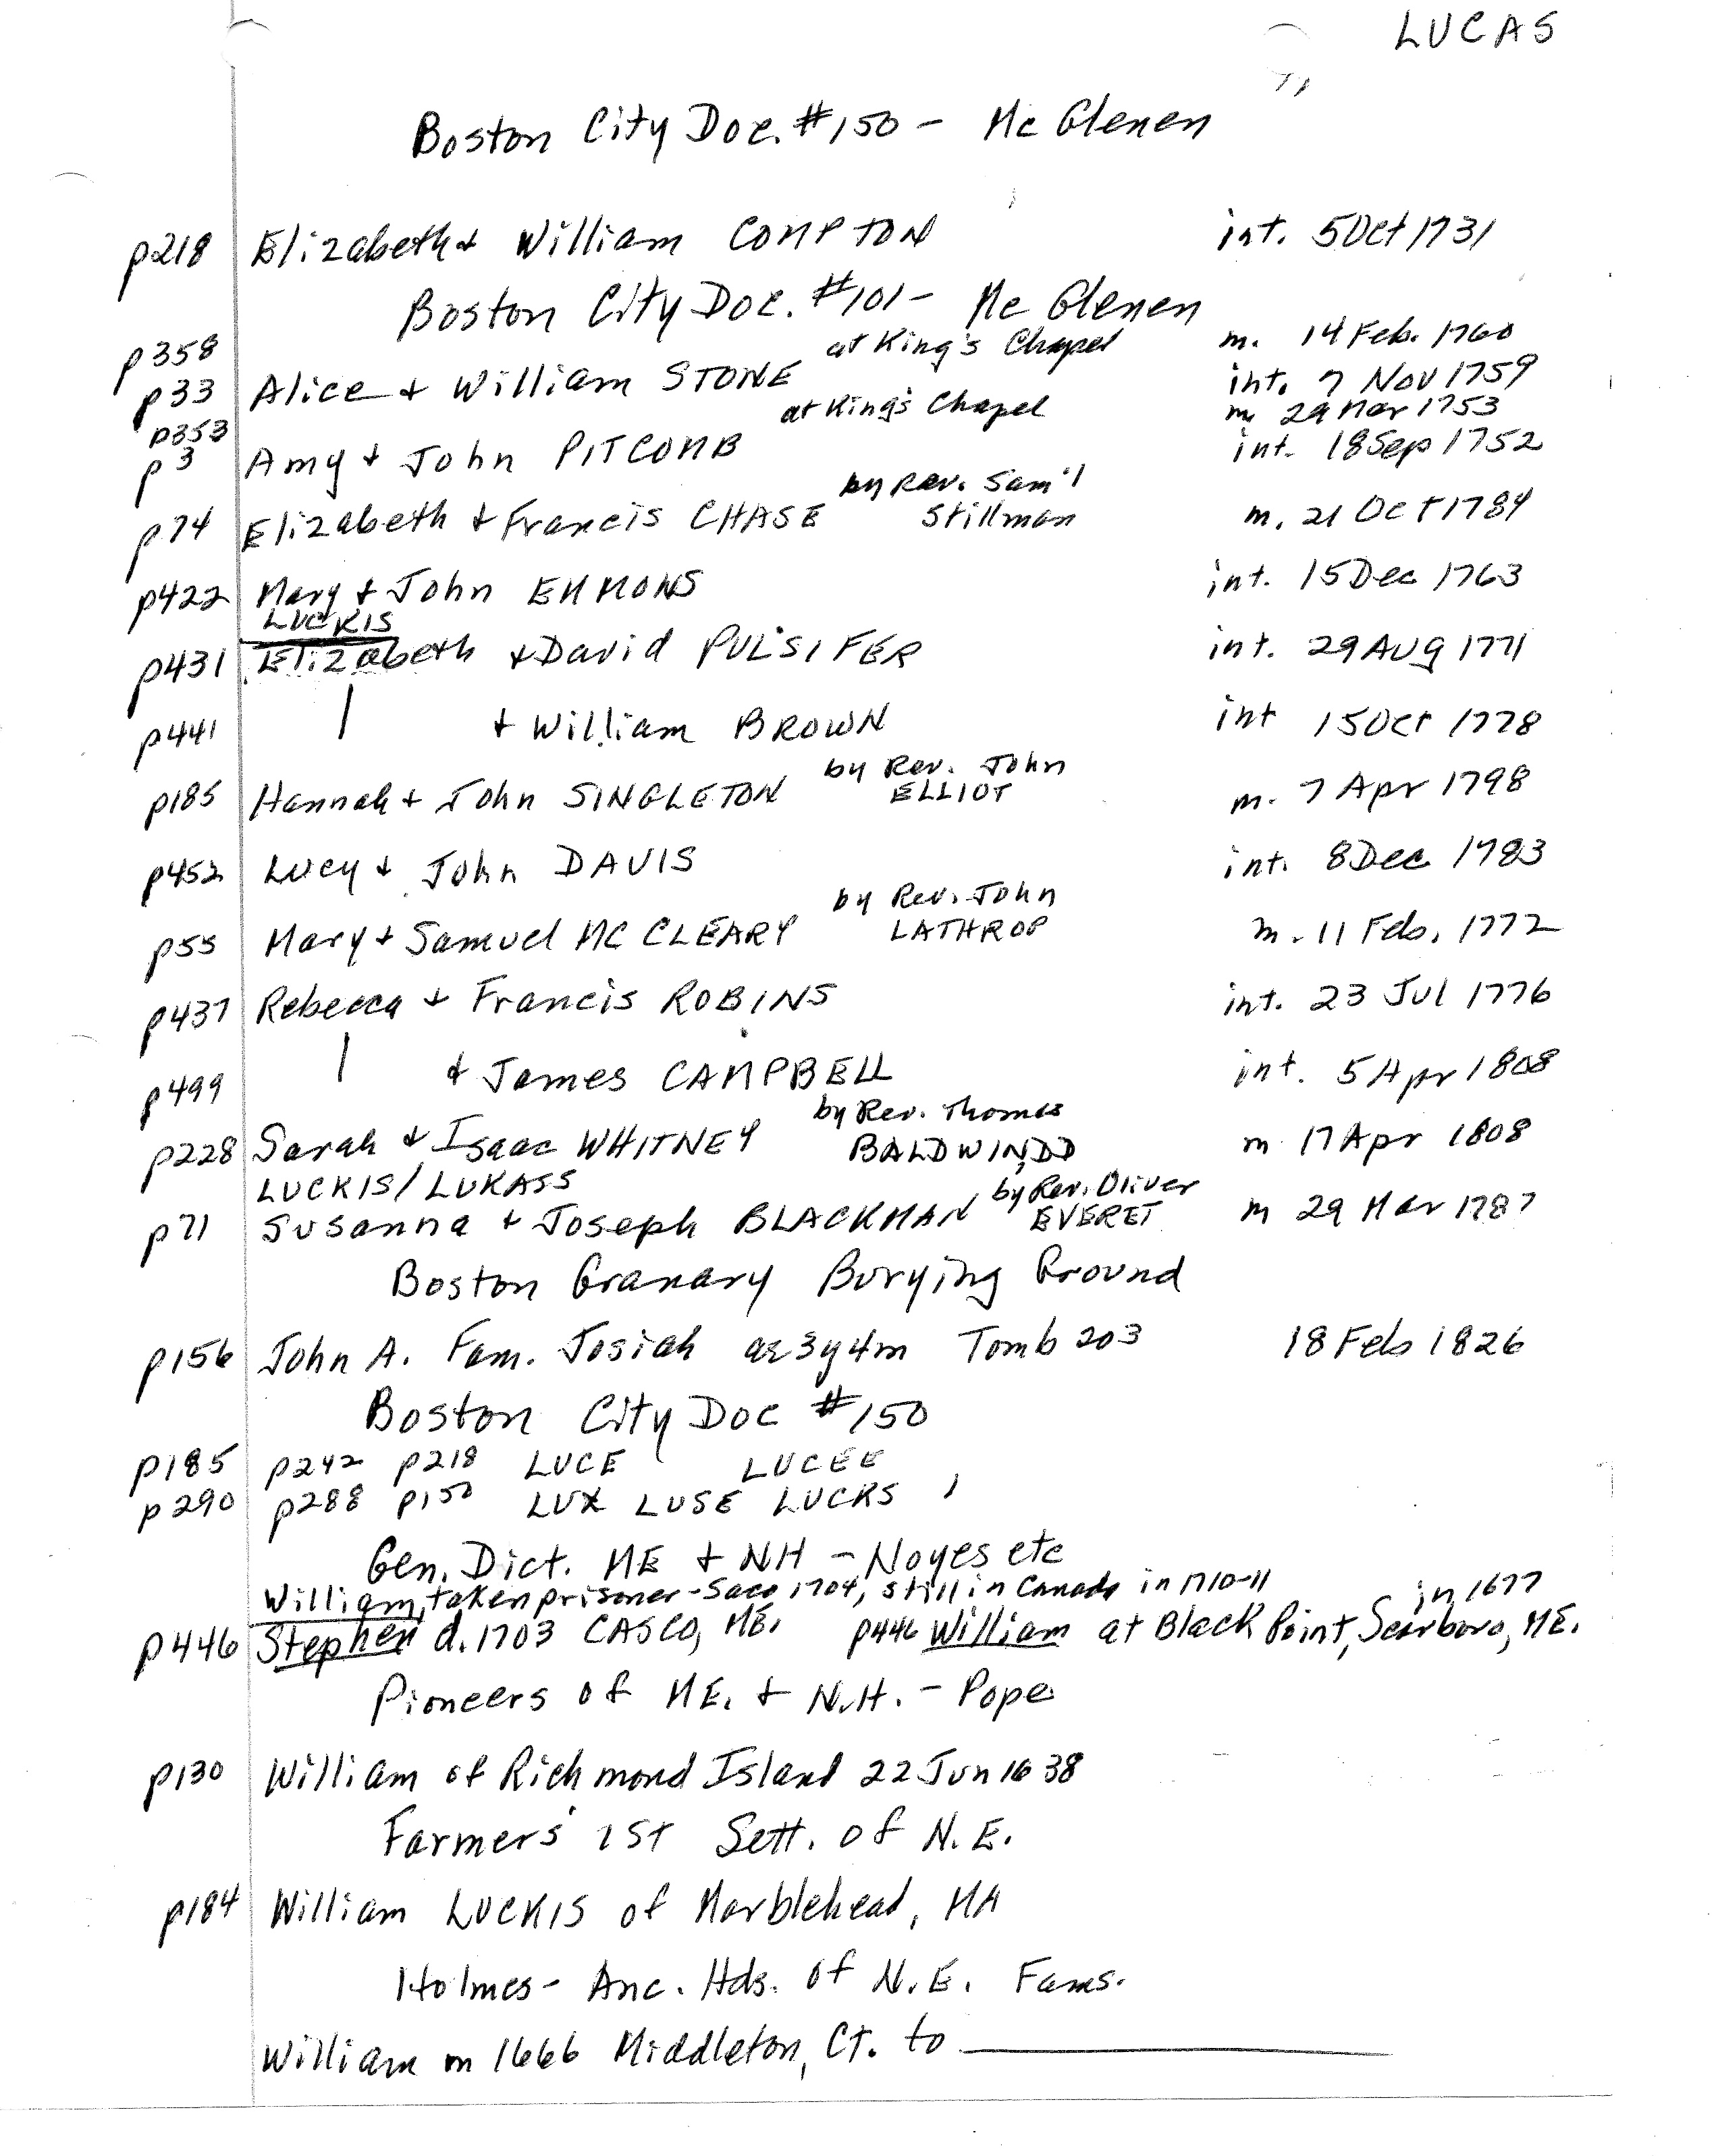 LUCAS
Boston City Doc. #150 - McGlenen
p218 Elizabeth & William COMPTON int. 5 Oct 1731
Boston City Doc. #101 - McGlenen
p358 at King's Chapel m. 14 Feb. 1760
p33 Alice & William STONE int. 7 Nov 1759
p353 at King's Chapel m 29 Mar 1753
p3 Amy & John PITCOMB int. 18 Sep 1752
by Rev. Sam'l
p74 Elizabeth & Francis CHASE Stillman m. 21 Oct 1784
p422 Mary & John EMMONS int. 15 Dec 1763
LUCKIS
p431 Elizabeth & David PULSIFER int. 29 Aug 1771
p441 | & William BROWN int 15 Oct 1778
by Rev. John
p185 Hannah & John SINGLETON ELLIOT m. 7 Apr 1798
p452 Lucy & John DAVIS int. 8 Dec 1783
by Rev. John
p55 Mary & Samuel MC CLEARY LATHROP m. 11 Feb. 1772
p437 Rebecca & Francis ROBINS int. 23 Jul 1776
p499 | & James CAMPBELL int. 5 Apr 1808
by Rev. Thomas
p228 Sarah & Isaac WHITNEY BALDWIN, DD m 17 Apr 1808
LUCKIS/LUKASS by Rev. Oliver
p71 Susanna & Joseph BLACKMAN EVERET m 29 Mar 1787
Boston Granary Burying Ground
p156 John A. Fam. Josiah ae 3y4m Tomb 203 18 Feb 1826
Boston City Doc #150
p185 p242 p218 LUCE LUCEE
p290 p288 p150 LUX LUSE LUCKS
Gen. Dict. ME & NH - Noyes etc
William, taken prisoner - Saco 1704, still in Canada in 1710-11 in 1677
p446 Stephen d. 1703 CASCO, ME. p446 William at Black Point, Scarboro, ME.
Pioneers of ME. & N.H. - Pope
p130 William of Richmond Island 22 Jun 1638
Farmers' 1st Sett. of N.E.
p184 William LUCKIS of Marblehead, MA
Holmes - Anc. Hds. of N.E. Fams.
William m 1666 Middleton, CT. to